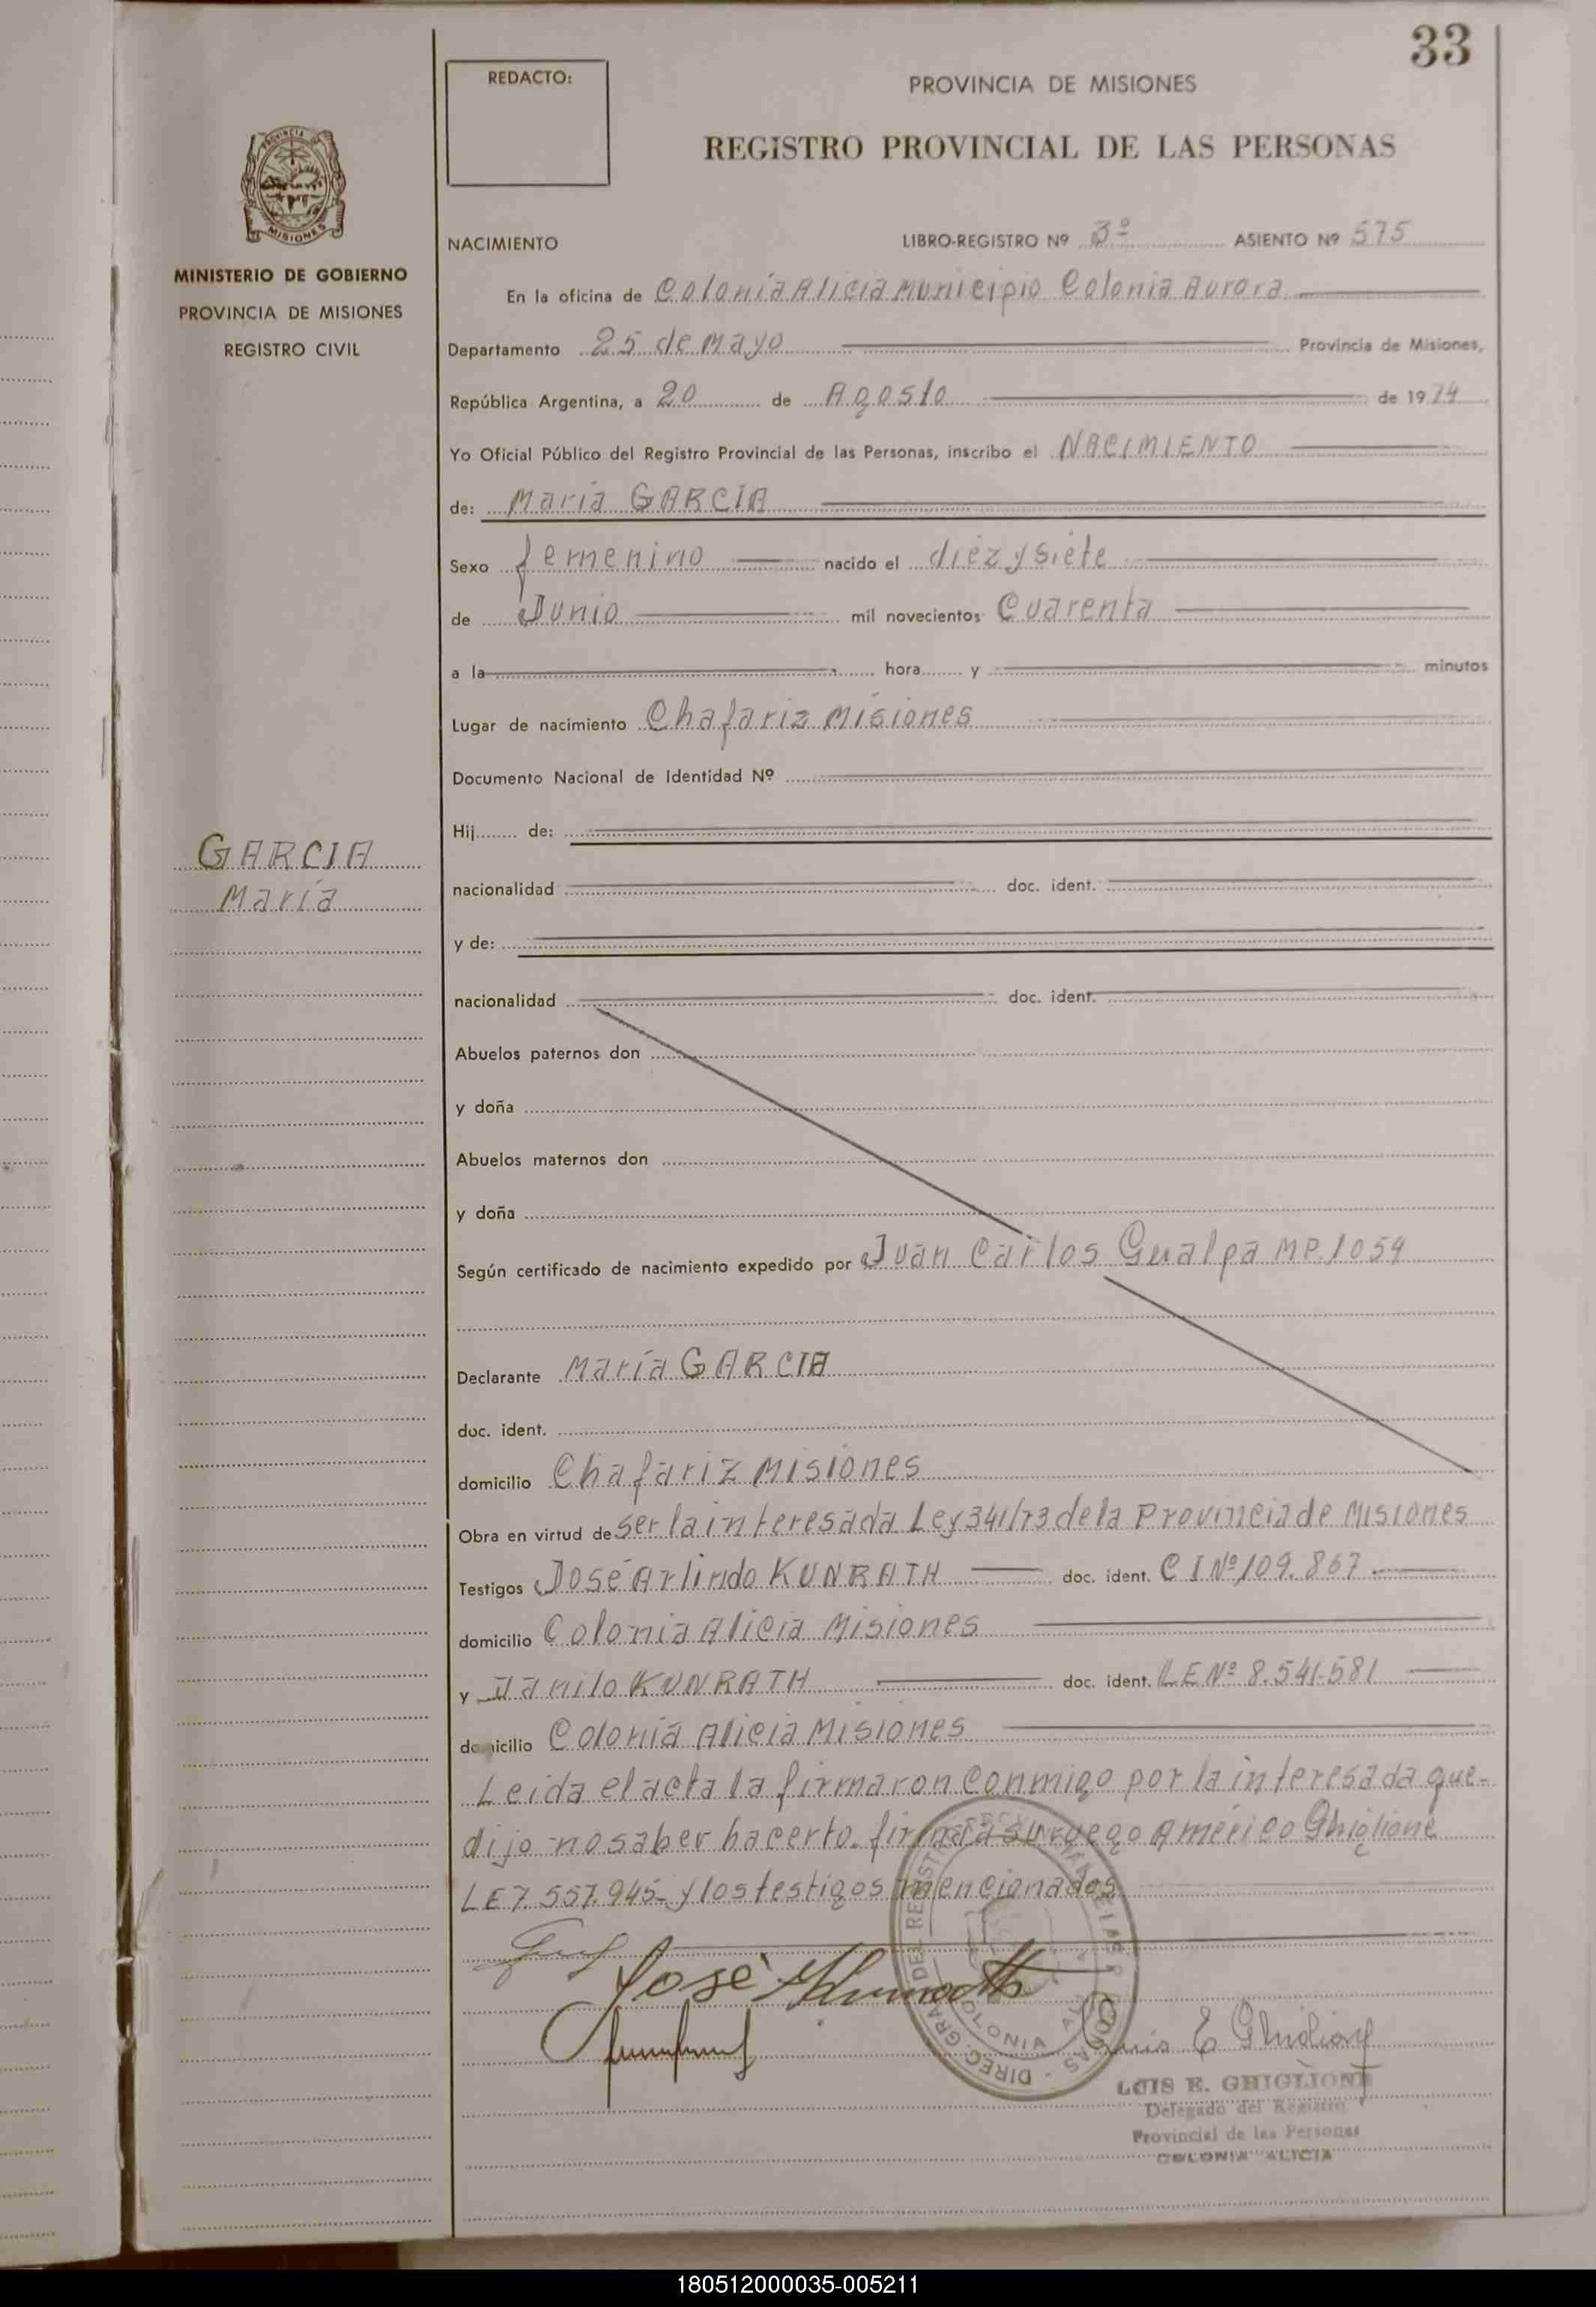 33
REDACTO:
PROVINCIA DE MISIONES
REGISTRO PROVINCIAL DE LAS PERSONAS
PROVINCIA DE MISIONES
MINISTERIO DE GOBIERNO
PROVINCIA DE MISIONES
REGISTRO CIVIL
NACIMIENTO LIBRO-REGISTRO Nº 3º ASIENTO Nº 575
En la oficina de Colonia Alicia Municipio Colonia Aurora
Departamento 25 de Mayo Provincia de Misiones,
República Argentina, a 20 de Agosto de 1974
Yo Oficial Público del Registro Provincial de las Personas, inscribo el NACIMIENTO
de: María GARCIA
Sexo femenino nacido el diez y siete
de Junio mil novecientos Cuarenta
a la hora y minutos
Lugar de nacimiento Chafariz Misiones
Documento Nacional de Identidad Nº
Hij de:
GARCIA
María
nacionalidad doc. ident.
y de:
nacionalidad doc. ident.
Abuelos paternos don
y doña
Abuelos maternos don
y doña
Según certificado de nacimiento expedido por Juan Carlos Gualpa MP.1054
Declarante María GARCIA
doc. ident.
domicilio Chafariz Misiones
Obra en virtud de ser la interesada Ley 341/73 de la Provincia de Misiones
Testigos José Arlindo KUNRATH doc. ident. C I Nº 109.867
domicilio Colonia Alicia Misiones
y Danilo KUNRATH doc. ident. LE Nº 8.541.581
domicilio Colonia Alicia Misiones
Leida el acta la firmaron conmigo por la interesada que-
dijo no saber hacerlo firmará a su ruego Américo Ghiglione
LE 7.557.945- y los testigos mencionados
José Kunrath
Luis E Ghiglione
LUIS E. GHIGLIONE
Delegado del Registro
Provincial de las Personas
COLONIA ALICIA
180512000035-005211